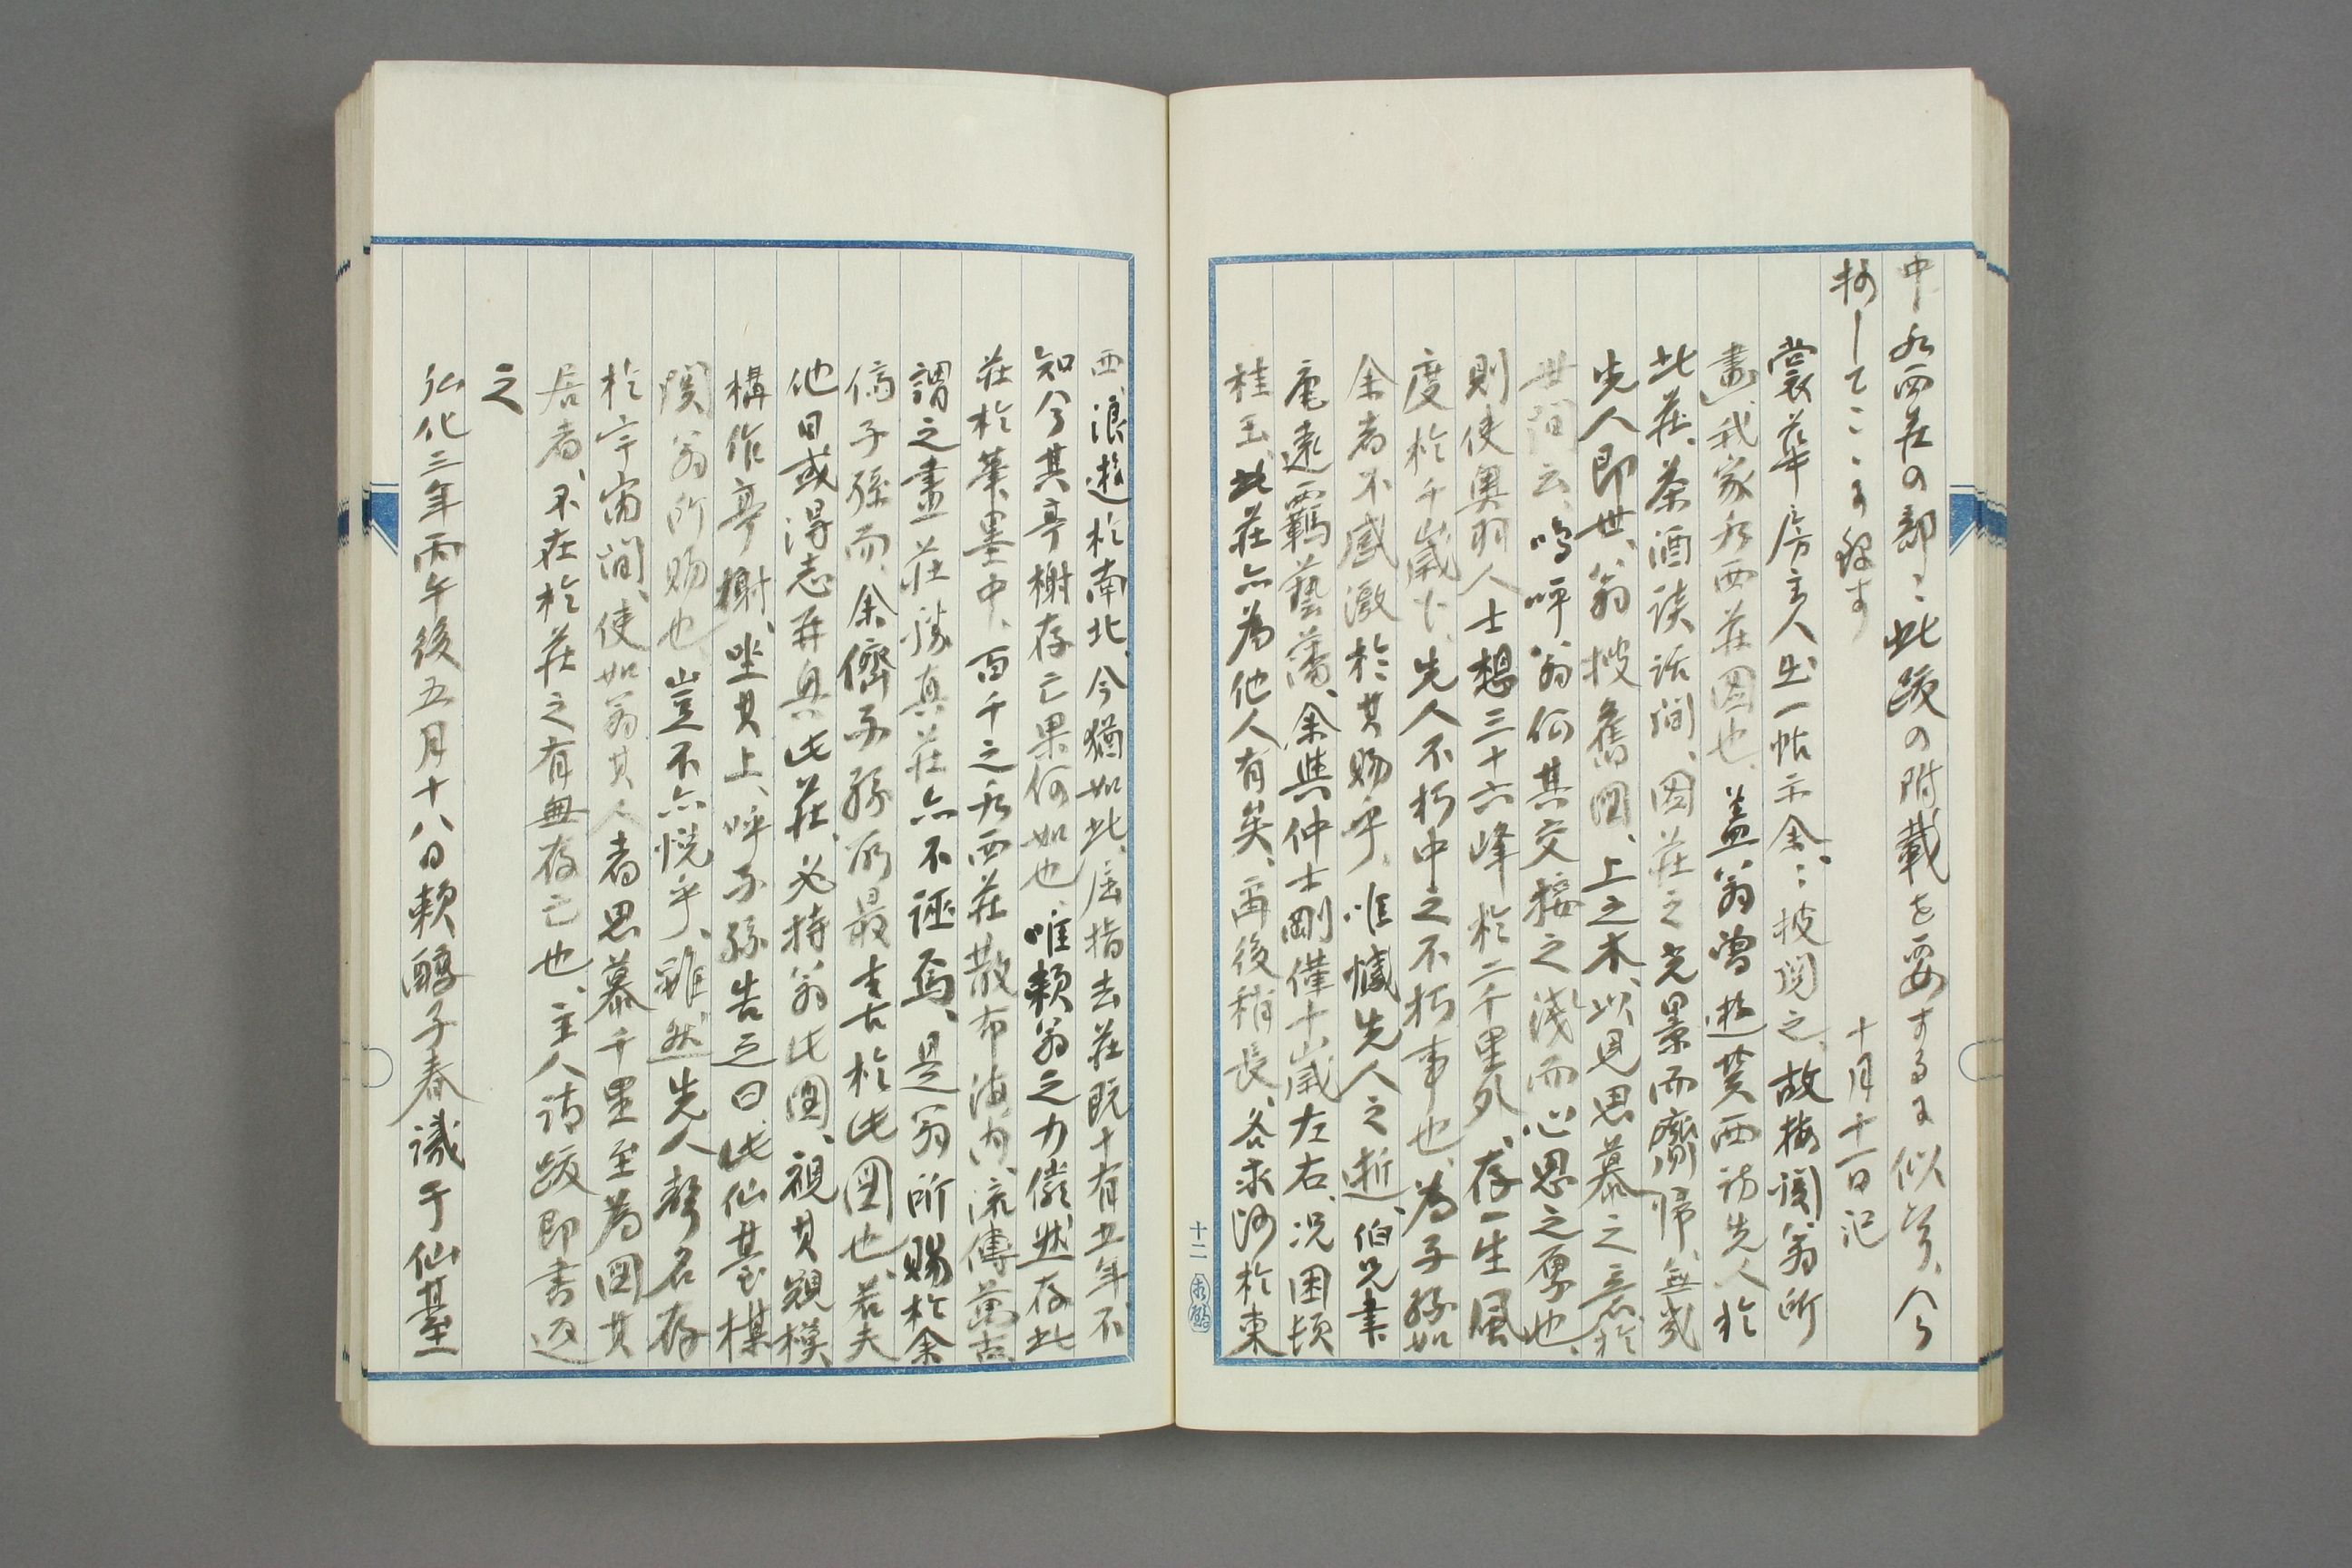 中水西荘の部に此跋の附載を要するに似たり、今
抄してここに録す　十月十一日記
裳華房主人出一帖示余、披閲之、故梅関翁所
畫我家水西荘図也、蓋翁曽遊葵西訪先人於
此荘、茶酒談話間、図荘之光景而齎帰、無幾
先人即世、翁捜舊図、上之木、以見思慕之意於
世間云、嗚呼翁何其交接之浅而心思之厚也、
則使奥羽人士想三十六峰於二千里外、存一生風
度於千歳下、先人不朽中之不朽事也、為子孫如
余者不感激於其賜乎、唯憾先人之逝、伯兄書
庵遠羈藝藩、余與仲士剛僅十歳左右、况困頓
桂玉、此荘亦為他人有矣、爾後稍長、各求師於東
十二
西、浪遊於南北、今猶如此、屈指去荘既十有五年、不
知今其亭榭存亡果何如也、唯頼翁之力儼然存此
荘於筆墨中、百千之水西荘散布海内、流傳萬古、
謂之畫荘勝真荘亦不誣焉、是翁所賜於余
儕子孫、而余儕子孫所最查古於此図也、若夫
他日或得志再興此荘、必持翁此図、視其規模
構作亭榭、坐其上、呼子孫告之曰、此仙臺梅
関翁所賜也、豈不亦悦乎、雖然先人聲名存
於宇宙間、使如翁其人者思慕千里至為図其
居者、不在於荘之有無存亡也、主人請跋即書返
之
弘化三年丙午後五月十八日頼醇子春識于仙臺